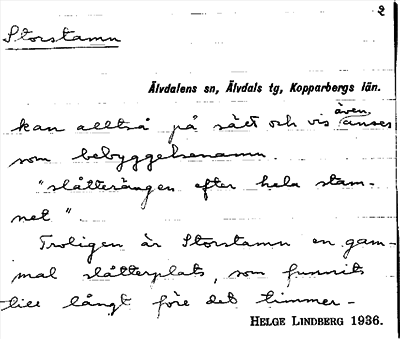 2
Storstamn
Älvdalens sn, Älvdals tg, Kopparbergs län.
kan alltså på sätt och vis även anses
som bebyggelsenamn.
"slåtterängen efter hela stam-
net".
Troligen är Storstamn en gam-
mal slåtterplats, som funnits
till långt före det timmer-
HELGE LINDBERG 1936.